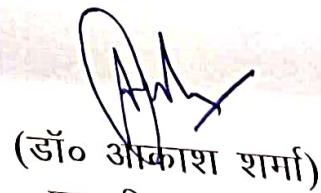 (डॉ० आकाश शर्मा)